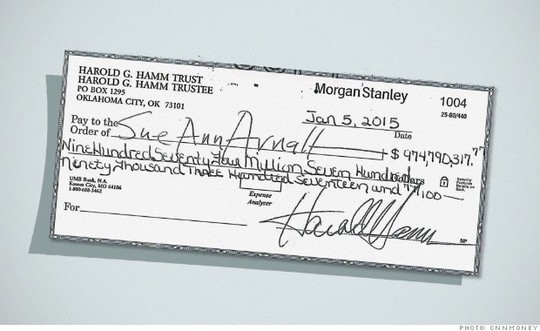 HAROLD G. HAMM TRUST
HAROLD G. HAMM TRUSTEE
PO BOX 1295
OKLAHOMA CITY, OK 73101
Morgan Stanley
1004
25-80/440
Jan 5, 2015
Date
Pay to the
Order of Sue Ann Arnall $ 974,790,317.77
Nine Hundred Seventy Four Million Seven Hundred Dollars
Ninety Thousand Three Hundred Seventeen and 77/100
UMB Bank, N.A.
Kansas City, MO 64106
Expense
Analyzer
For
Harold Hamm
MP
PHOTO: CNNMONEY